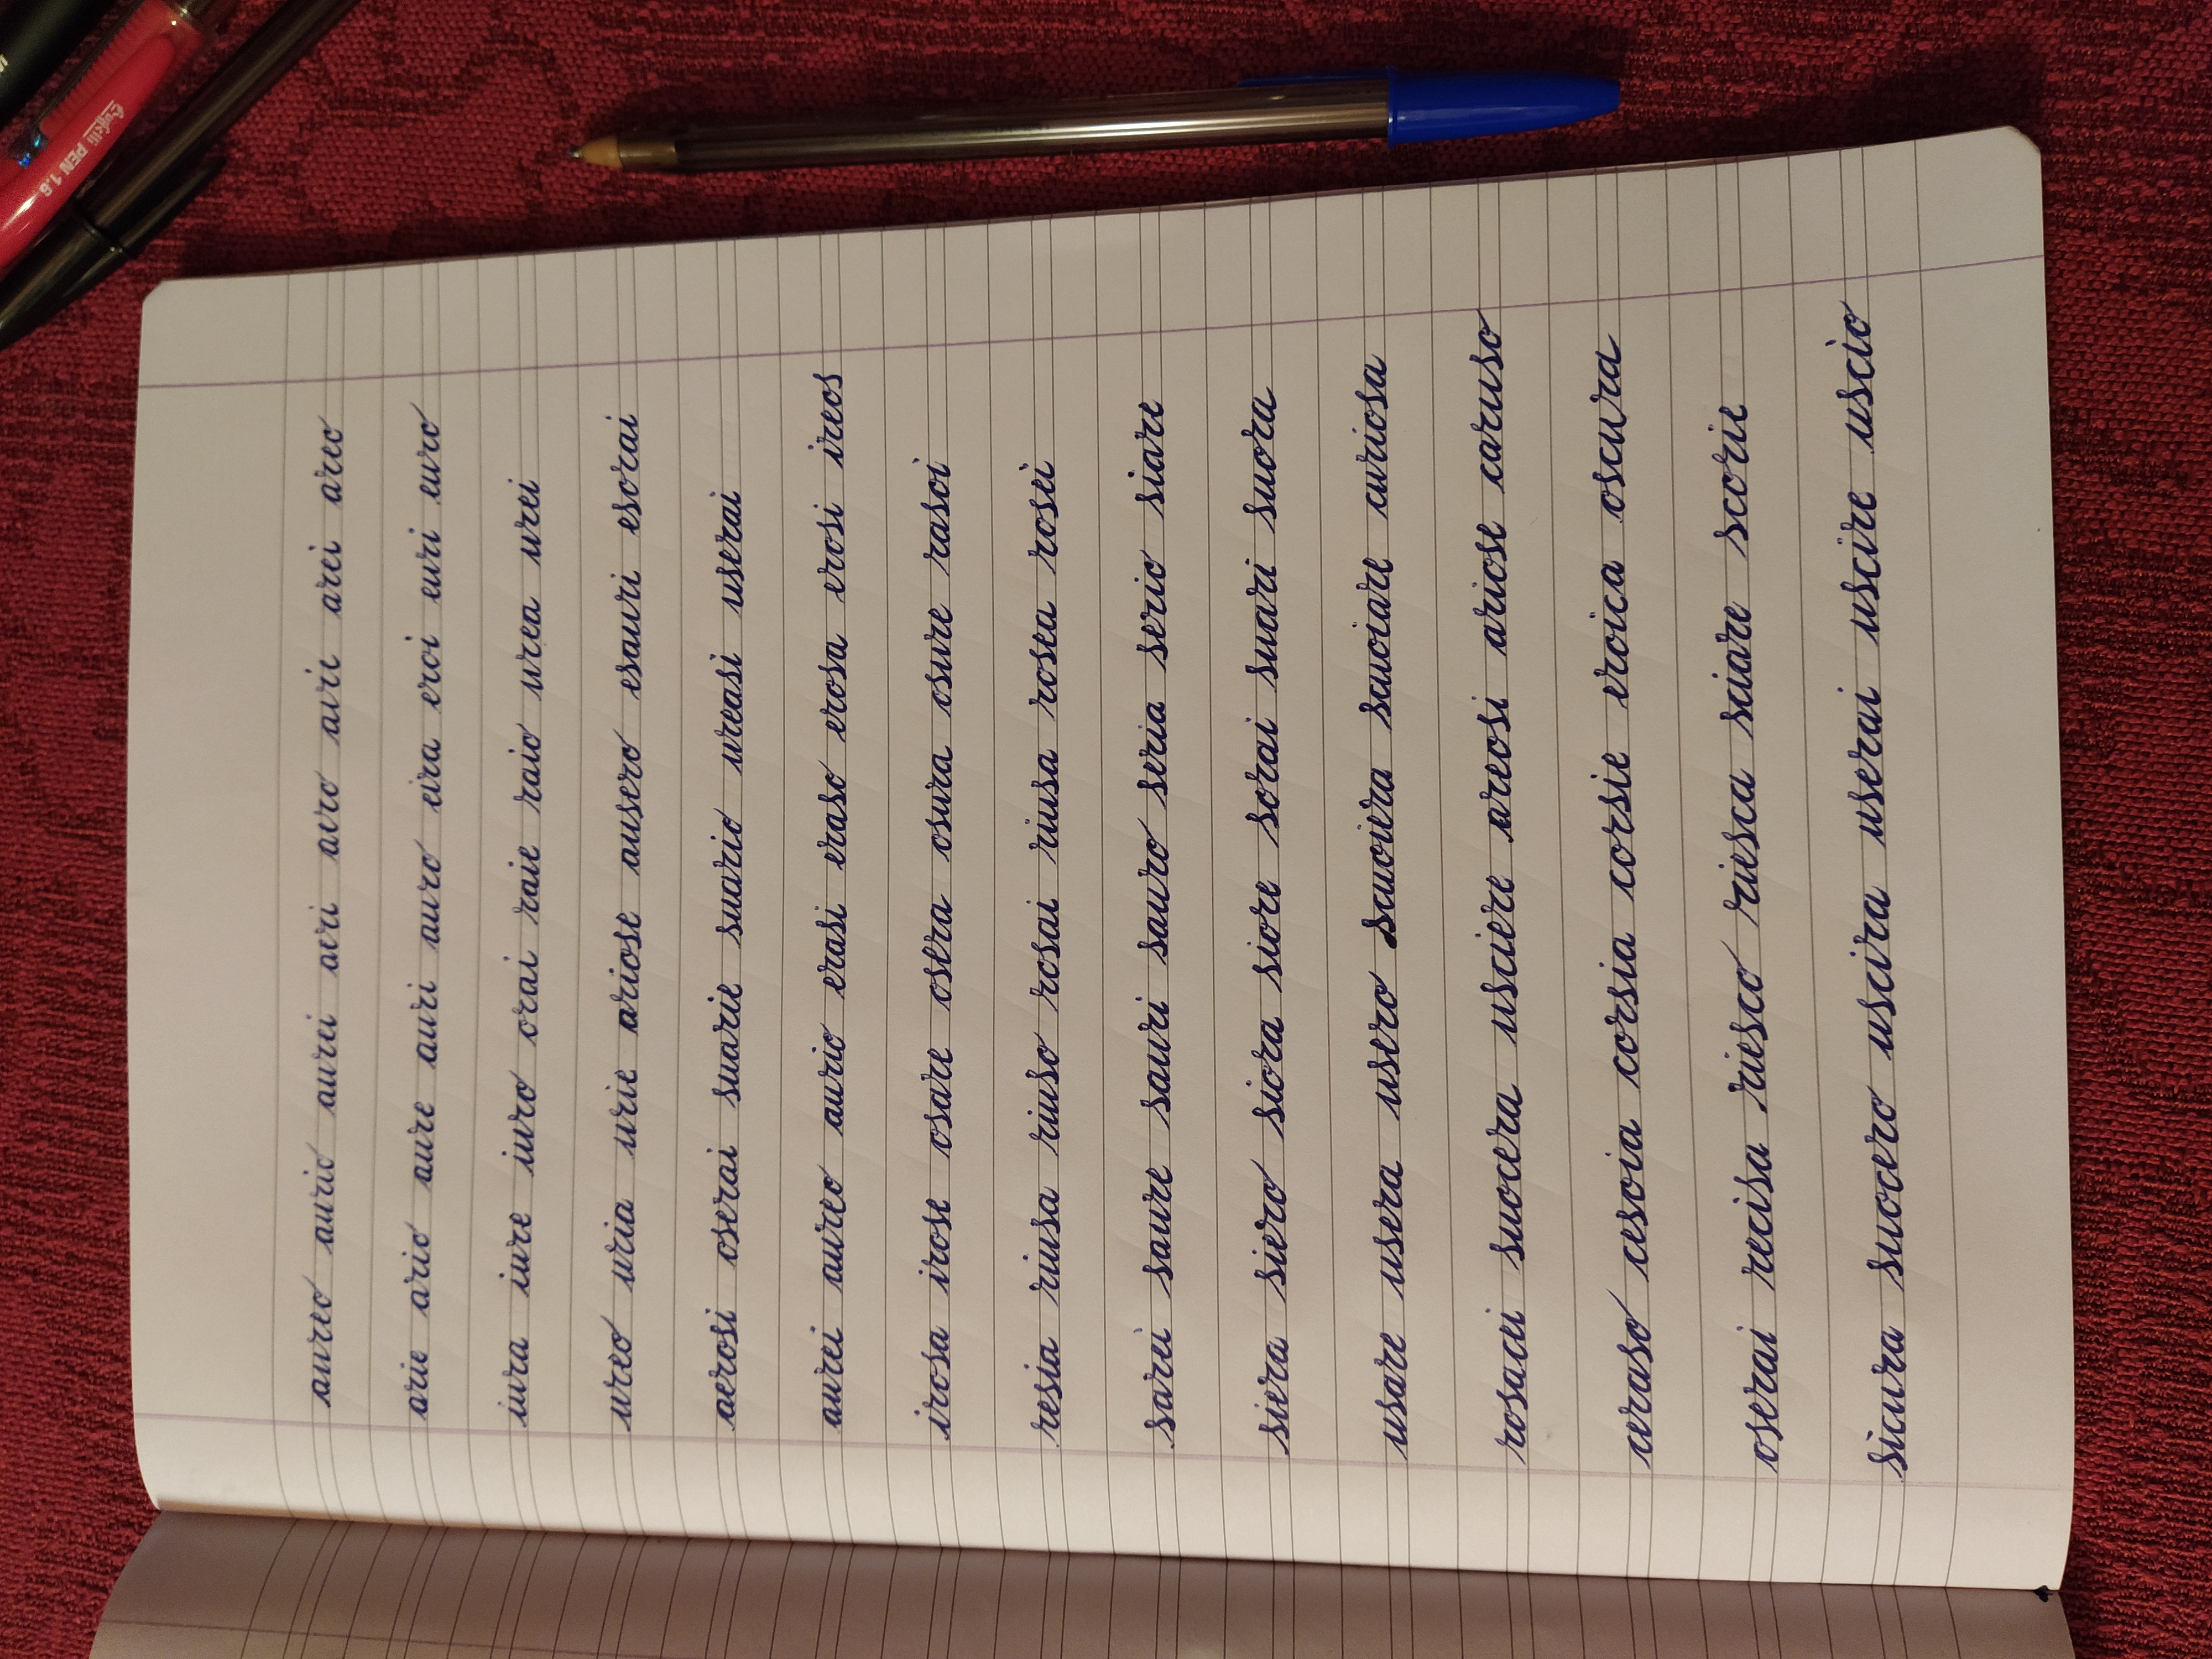 aureo aurio aurei airi airo aire arei areo
arie ario aure auri auro eira eroi euri euro
iura iure iuro orai raie raio urea urei
ureo uria urie ariose ausero esauri esorai
aerosi oserai suarie suario ureasi userai
aurei aureo aurio erasi eraso erosa erosi ireos
irosa irose osare osera osura osure rasoi
resia riusa riuso rosai riusa rosea rosei
sarei saure sauri sauro seria serio siare
siera siero siora siore sorai suari suora
usare usera usero scuoiera scuoiare curiosa
rosacei suocera usciere areosi ariose caruso
ceraso cesoia corsia corsie eroica oscura
oserai recisa riesco riesca sciare scorie
sicura suocero uscira userai uscire uscio
PEN 1.6